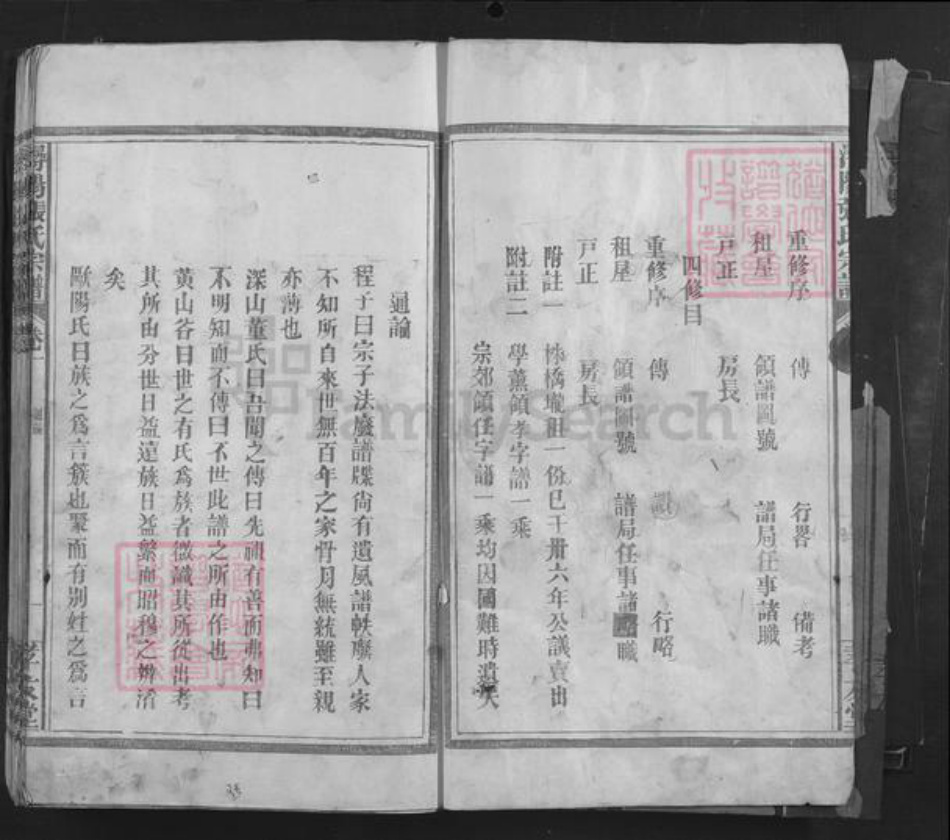 重修序 傳 行畧 備考
租屋 領譜圖號 譜局任事諸職
戸正 房長
四修目
重修序 傳 行略
租屋 領譜圖號 譜局任事諸 職
戸正 房長
附註一 橋壠租一份已于卅六年公議賣出
附註二 學薰領孝字譜一乘
宗郊領任字譜一乘均因國難時遺失
通論
程子曰宗子法廢譜牒尙有遺風譜軼廢人家
不知所自來世無百年之家骨月無統雖至親
亦薄也
深山董氏曰吾聞之傳曰先祖有善而弗知曰
不明知而不傳曰不世此譜之所由作也
黄山谷曰世之有氏爲族者微識其所從出考
其所由分世日益遠族日益繁而昭穆之辨淆
矣
歐陽氏曰族之爲言簇也聚而有别姓之爲言
潯陽張氏宗譜 卷一
孝友堂
FamilySearch